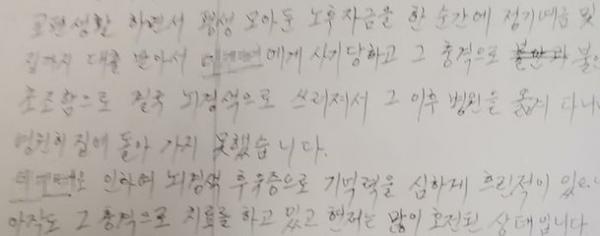 교편생활 하면서 평생 모아둔 노후자금을 한 순간에 정기예금 및
집까지 대출 받아서 에게 사기당하고 그 충격으로 불안
초조함으로 결국 뇌경색으로 쓰러져서 그 이후 병원을 옮겨 다니
영원히 집에 돌아 가지 못했습니다.
인하여 뇌경색 후유증으로 기억력을 심하게 흐린적이 있으
아직도 그 충격으로 치료를 하고 있고 현재는 많이 호전된 상태입니다